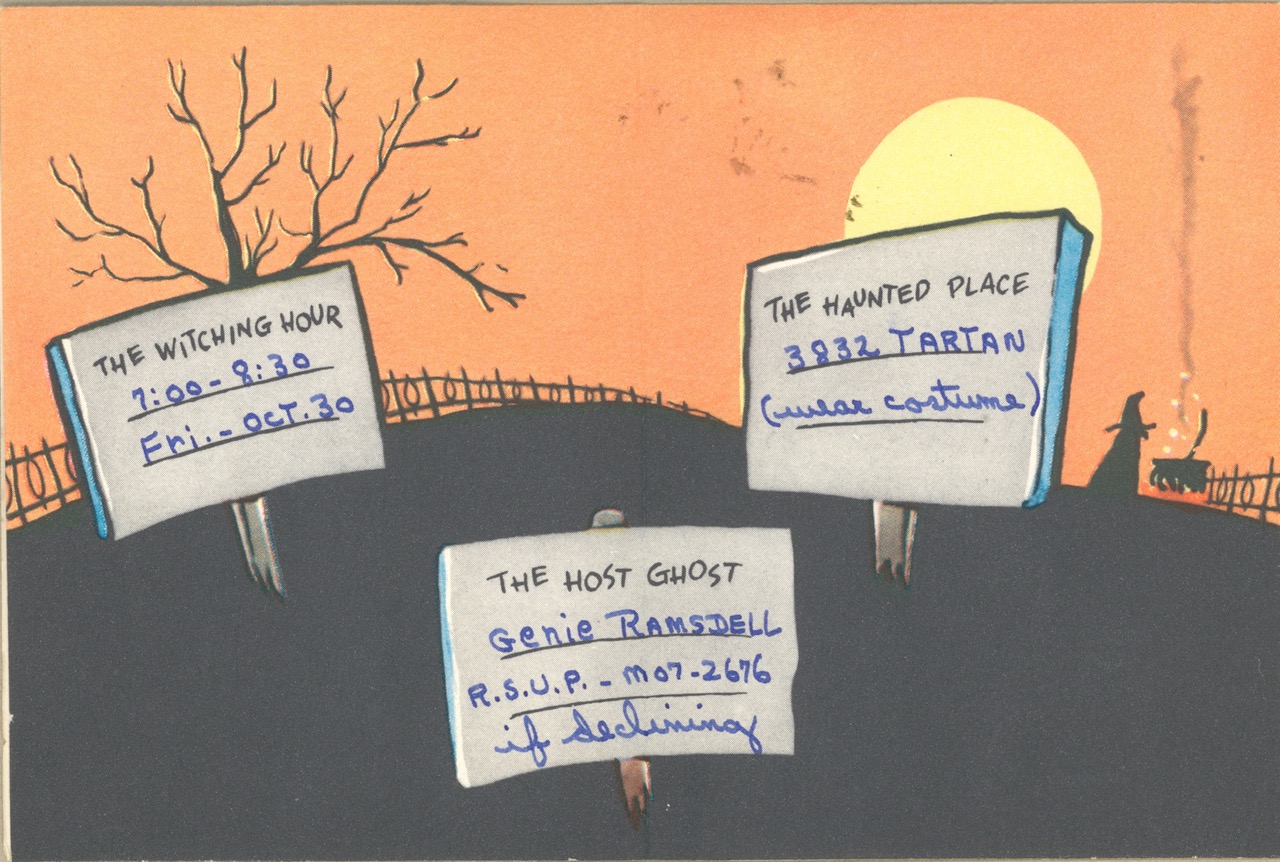 THE WITCHING HOUR
7:00 - 8:30
Fri. - OCT. 30
THE HAUNTED PLACE
3832 TARTAN
(wear costume)
THE HOST GHOST
Genie RAMSDELL
R.S.V.P. - MO7-2676
if declining